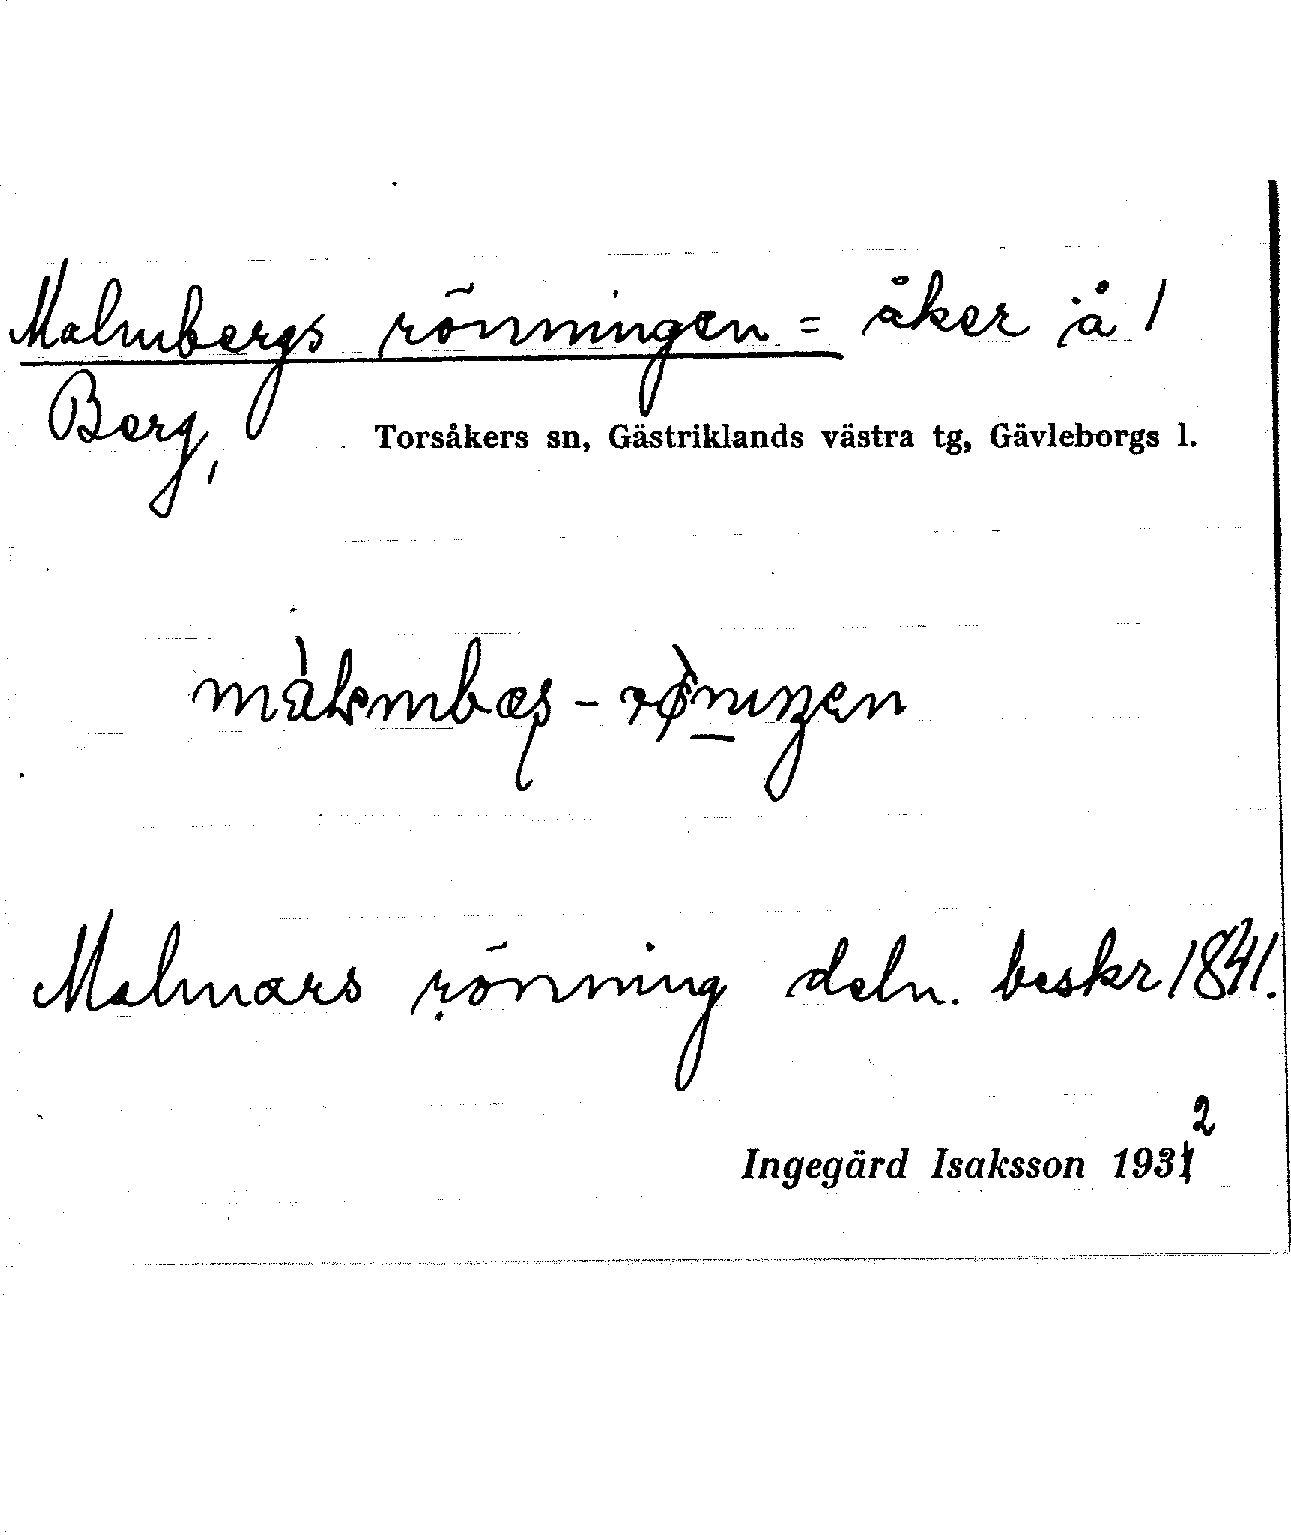 Malmbergs rönningen = åker å 1
Berg,
Torsåkers sn, Gästriklands västra tg, Gävleborgs l.
Malmars rönning deln. beskr 1841.
2
Ingegärd Isaksson 1931